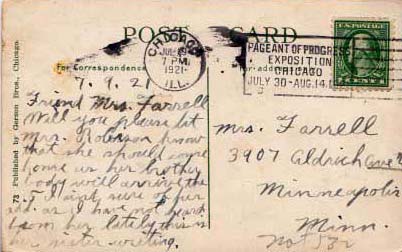 POST CARD
For Correspondence
CHICAGO
JUL
7 PM
1921
ILL.
PAGEANT OF PROGRESS
EXPOSITION
CHICAGO
JULY 30-AUG.14
U.S. POSTAGE
7.9.21
Friend Mrs. Farrell
Will you please let
Mrs. Roberson know
that she should come
home as her brother
body will arrive the
I think sure of her
add. as I have not heard
from her lately this is
her sister writing.
Mrs. Farrell
3907 Aldrich ave
Minneapolis
Minn.
not 532
73 Published by Gerson Bros., Chicago.